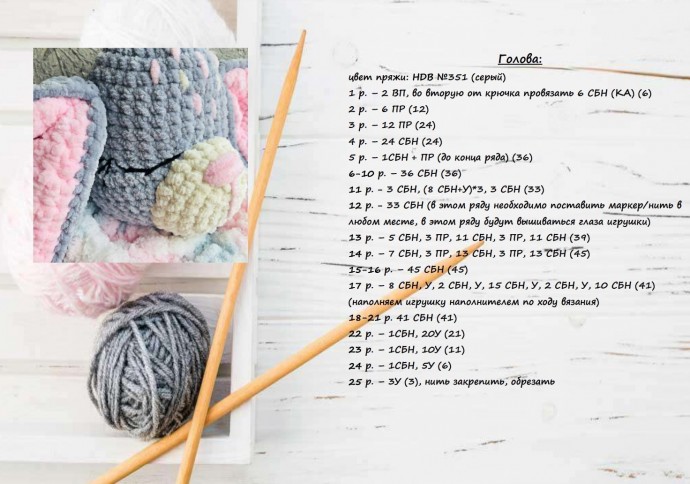 Голова:
цвет пряжи: HDB №351 (серый)
1 р. – 2 ВП, во вторую от крючка провязать 6 СБН (КА) (6)
2 р. – 6 ПР (12)
3 р. – 12 ПР (24)
4 р. – 24 СБН (24)
5 р. – 1СБН + ПР (до конца ряда) (36)
6-10 р. – 36 СБН (36)
11 р. - 3 СБН, (8 СБН+У)*3, 3 СБН (33)
12 р. - 33 СБН (в этом ряду необходимо поставить маркер/нить в
любом месте, в этом ряду будут вышиваться глаза игрушки)
13 р. – 5 СБН, 3 ПР, 11 СБН, 3 ПР, 11 СБН (39)
14 р. – 7 СБН, 3 ПР, 13 СБН, 3 ПР, 13 СБН (45)
15-16 р. – 45 СБН (45)
17 р. – 8 СБН, У, 2 СБН, У, 15 СБН, У, 2 СБН, У, 10 СБН (41)
(наполняем игрушку наполнителем по ходу вязания)
18-21 р. 41 СБН (41)
22 р. – 1СБН, 20У (21)
23 р. – 1СБН, 10У (11)
24 р. – 1СБН, 5У (6)
25 р. – 3У (3), нить закрепить, обрезать